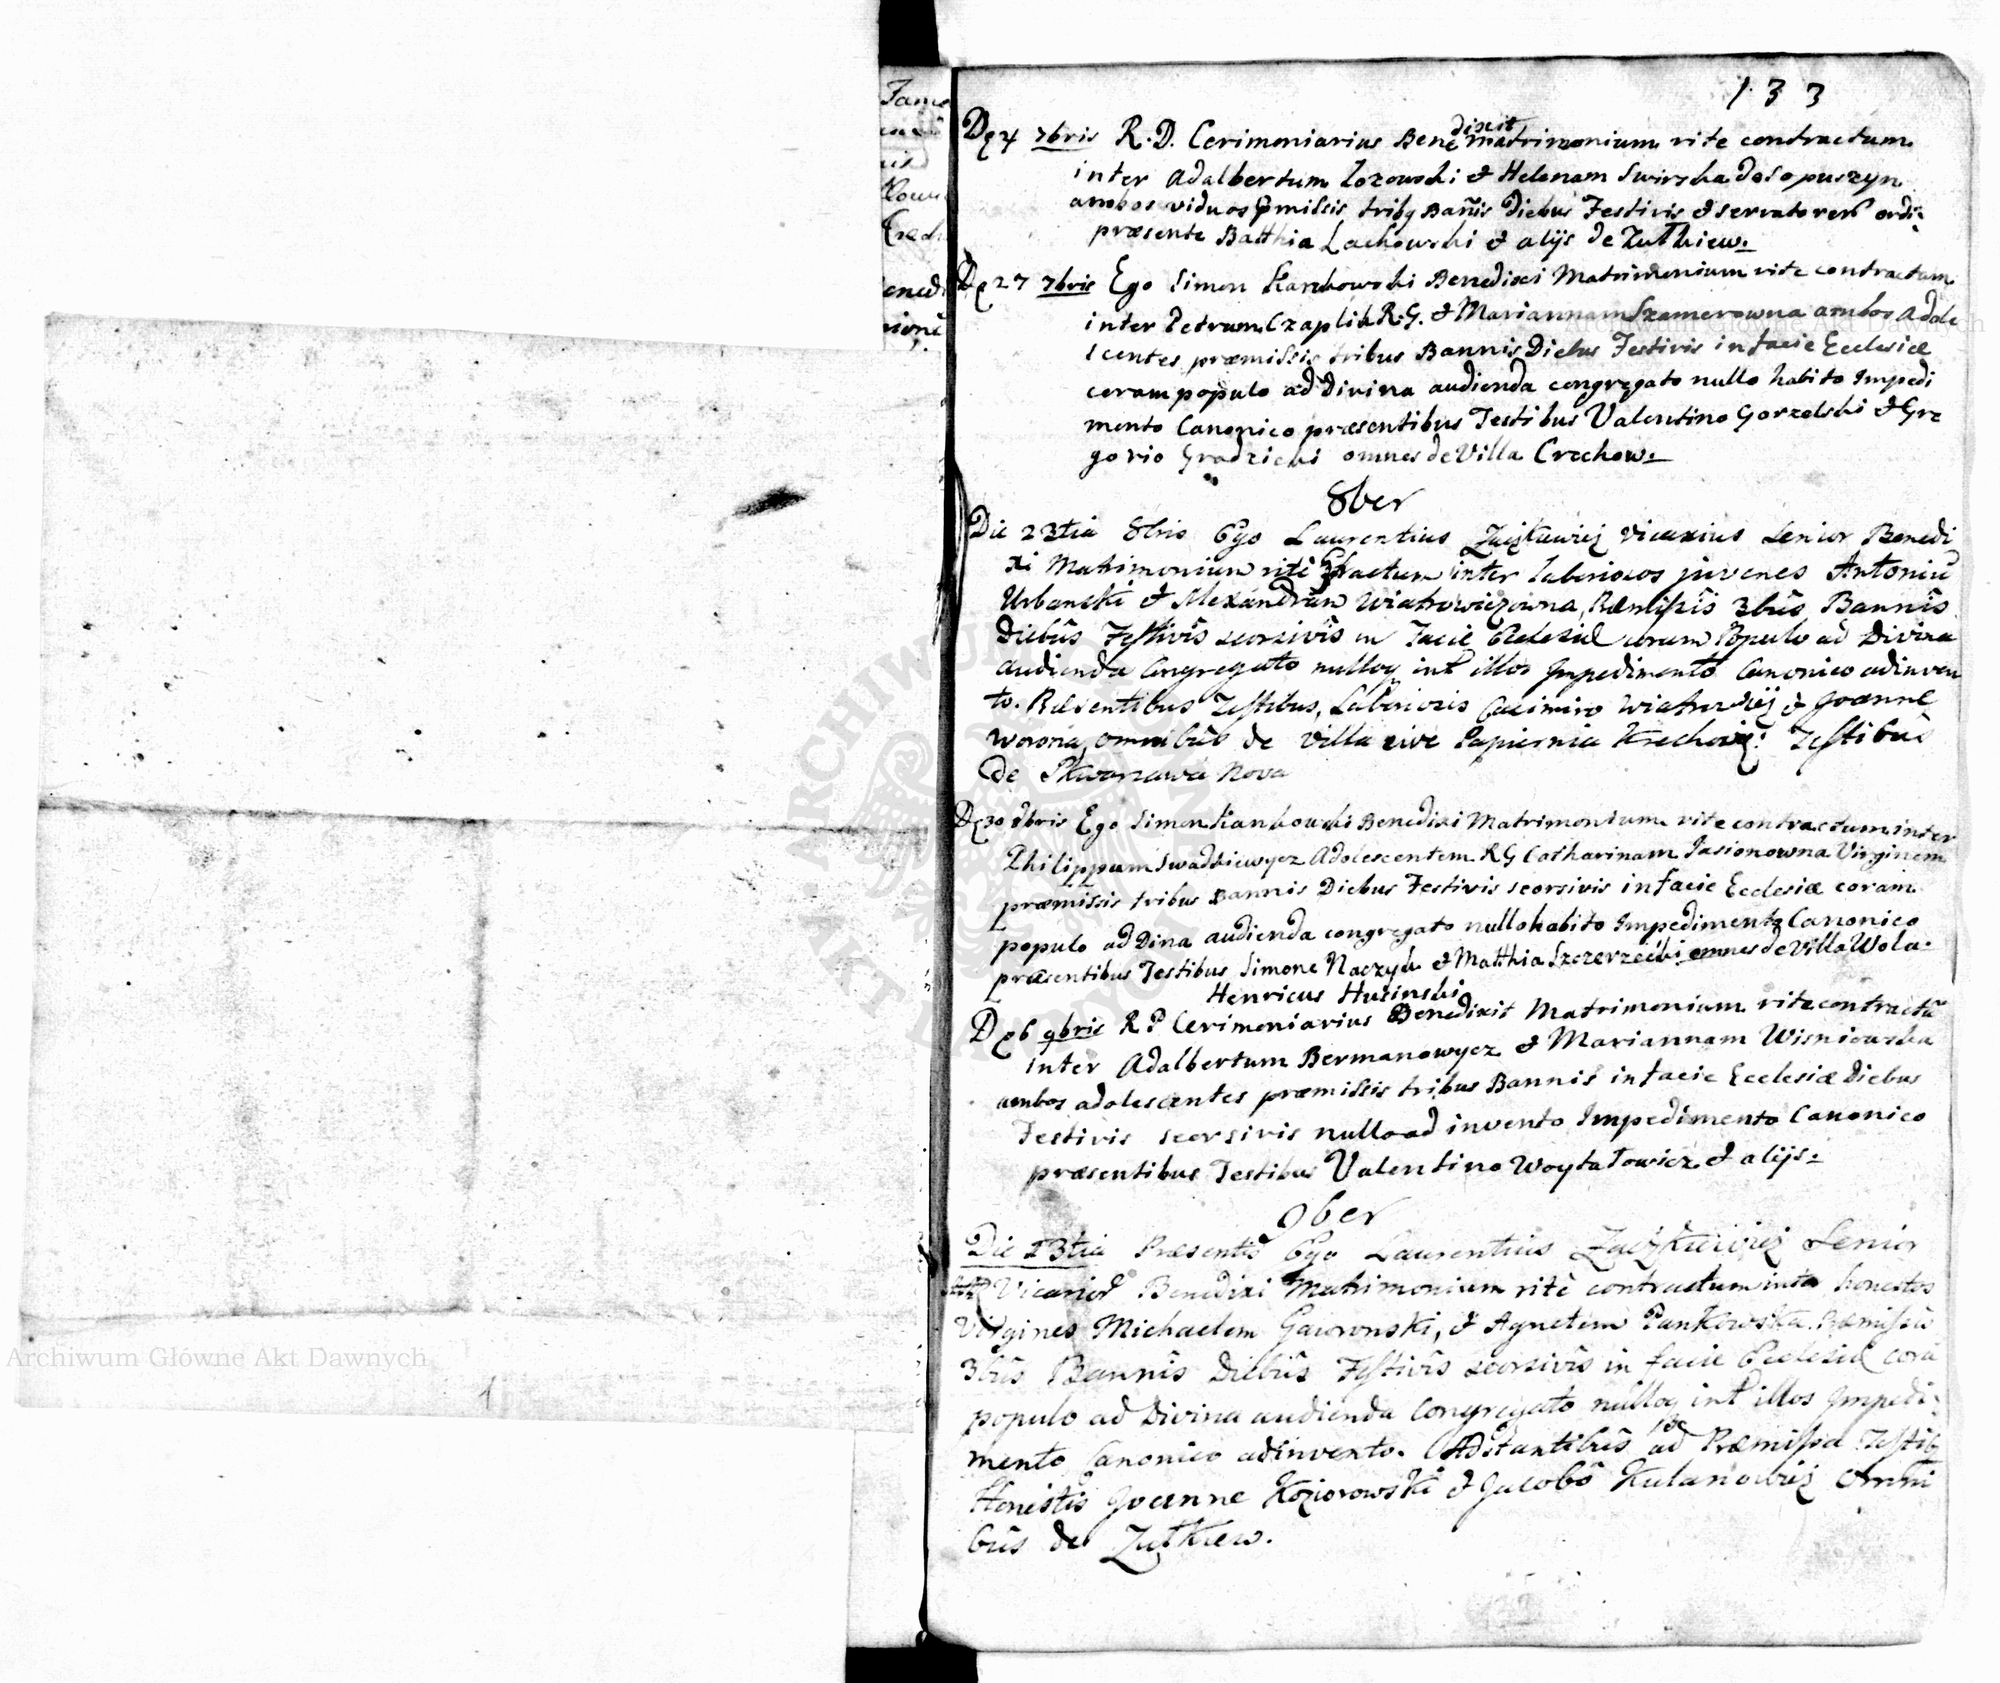 133
D. 4 7bris R. D. Cerimoniarius Benedixit matrimonium rite contractum
inter Adalbertum Lozowski & Helenam Swirska de Sopuszyn
ambos viduos pmissis tribq Bañis Diebus Festivis & servato rerũ ordi:
præsente Batthia Lachowski & alijs de Żułkiew.
De 27 7bris Ego Simon Kankowski Benedixi Matrimonium rite contractum
inter Petrum Czaplik R.G. & Mariannam Szamerowna ambos Adole
scentes præmissis tribus Bannis Diebus Festivis in facie Ecclesiæ
coram populo ad Divina audienda congregato nullo habito Impedi
mento Canonico præsentibus Testibus Valentino Gorzelski & Gre
gorio Gradzicki omnes de Villa Crechow.
8ber
Die 23tia 8bris Ego Laurentius Zaczkiewicz Vicarius Senior Benedi
xi Matrimonium ritè contractum inter laboriosos juvenes Antoniũ
Urbanski & Alexandram Wiatrowiczowna, Præmissis 3bus Bannis
Diebus Festivis seorsivis in Facie Ecclesiæ coram Populo ad Divina
audienda Congregato nulloq int illos Impedimento Canonico adinven
to. Præsentibus Testibus, Laboriosis Casimiro Wiatrowicz & Joanne
Worona, omnibus de villa sive Papiernia Krechow: Testibus
de Skwarzawa Nova
De 30 8bris Ego Simon Kankowski Benedixi Matrimonium rite contractum inter
Philippum Swadkiewycz Adolescentem RG Catharinam Jasionowna Virginem
præmissis tribus Bannis Diebus Festivis seorsivis in facie Ecclesiæ coram
populo ad Dina audienda congregato nullo habito Impedimento Canonico
præsentibus Testibus Simone Naczyk & Matthia Szczerzecki omnes de Villa Wola.
Henricus Husinski
De 6 9bris R P Cerimoniarius Benedixit Matrimonium rite contractũ
inter Adalbertum Bermanowycz & Mariannam Wisniowska
ambos adolescentes præmissis tribus Bannis in facie Ecclesiæ Diebus
Festivis seorsivis nullo ad invento Impedimento Canonico
præsentibus Testibus Valentino Woytałowicz & alijs.
9ber
Die 23tia Præsentis Ego Laurentius Zaczkiewicz Senior
Vicarius Benedixi Matrimonium ritè contractum inter honestos
Virgines Michaelem Gaworonski, & Agnetem Pankowska Præmissis
3bus Bannis Diebus Festivis seorsivis in facie Ecclesiæ corã
populo ad Divina audienda Congregato nulloq int illos Impedi:
mento Canonico adinvento. Adstantibus ad Præmissa Testibq
Honestis Joanne Koziorowski & Jacobo Kulanowicz omni
bus de Zułkiew.
Archiwum Główne Akt Dawnych
Archiwum Główne Akt Dawnych